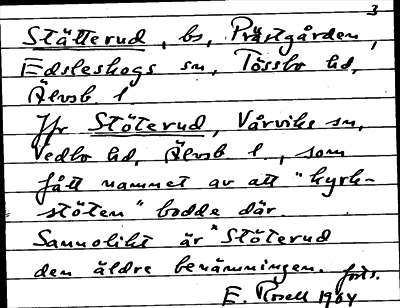 3
Stätterud, bs, Prästgården,
Edsleskogs sn, Tössbo hd,
Älvsb l.
Jfr Stöterud, Vårviks sn,
Vedbo hd, Älvsb l, som
fått namnet av att "kyrk-
stöten" bodde där.
Sannolikt är "Stöterud
den äldre benämningen. forts.
E. Rosell 1964